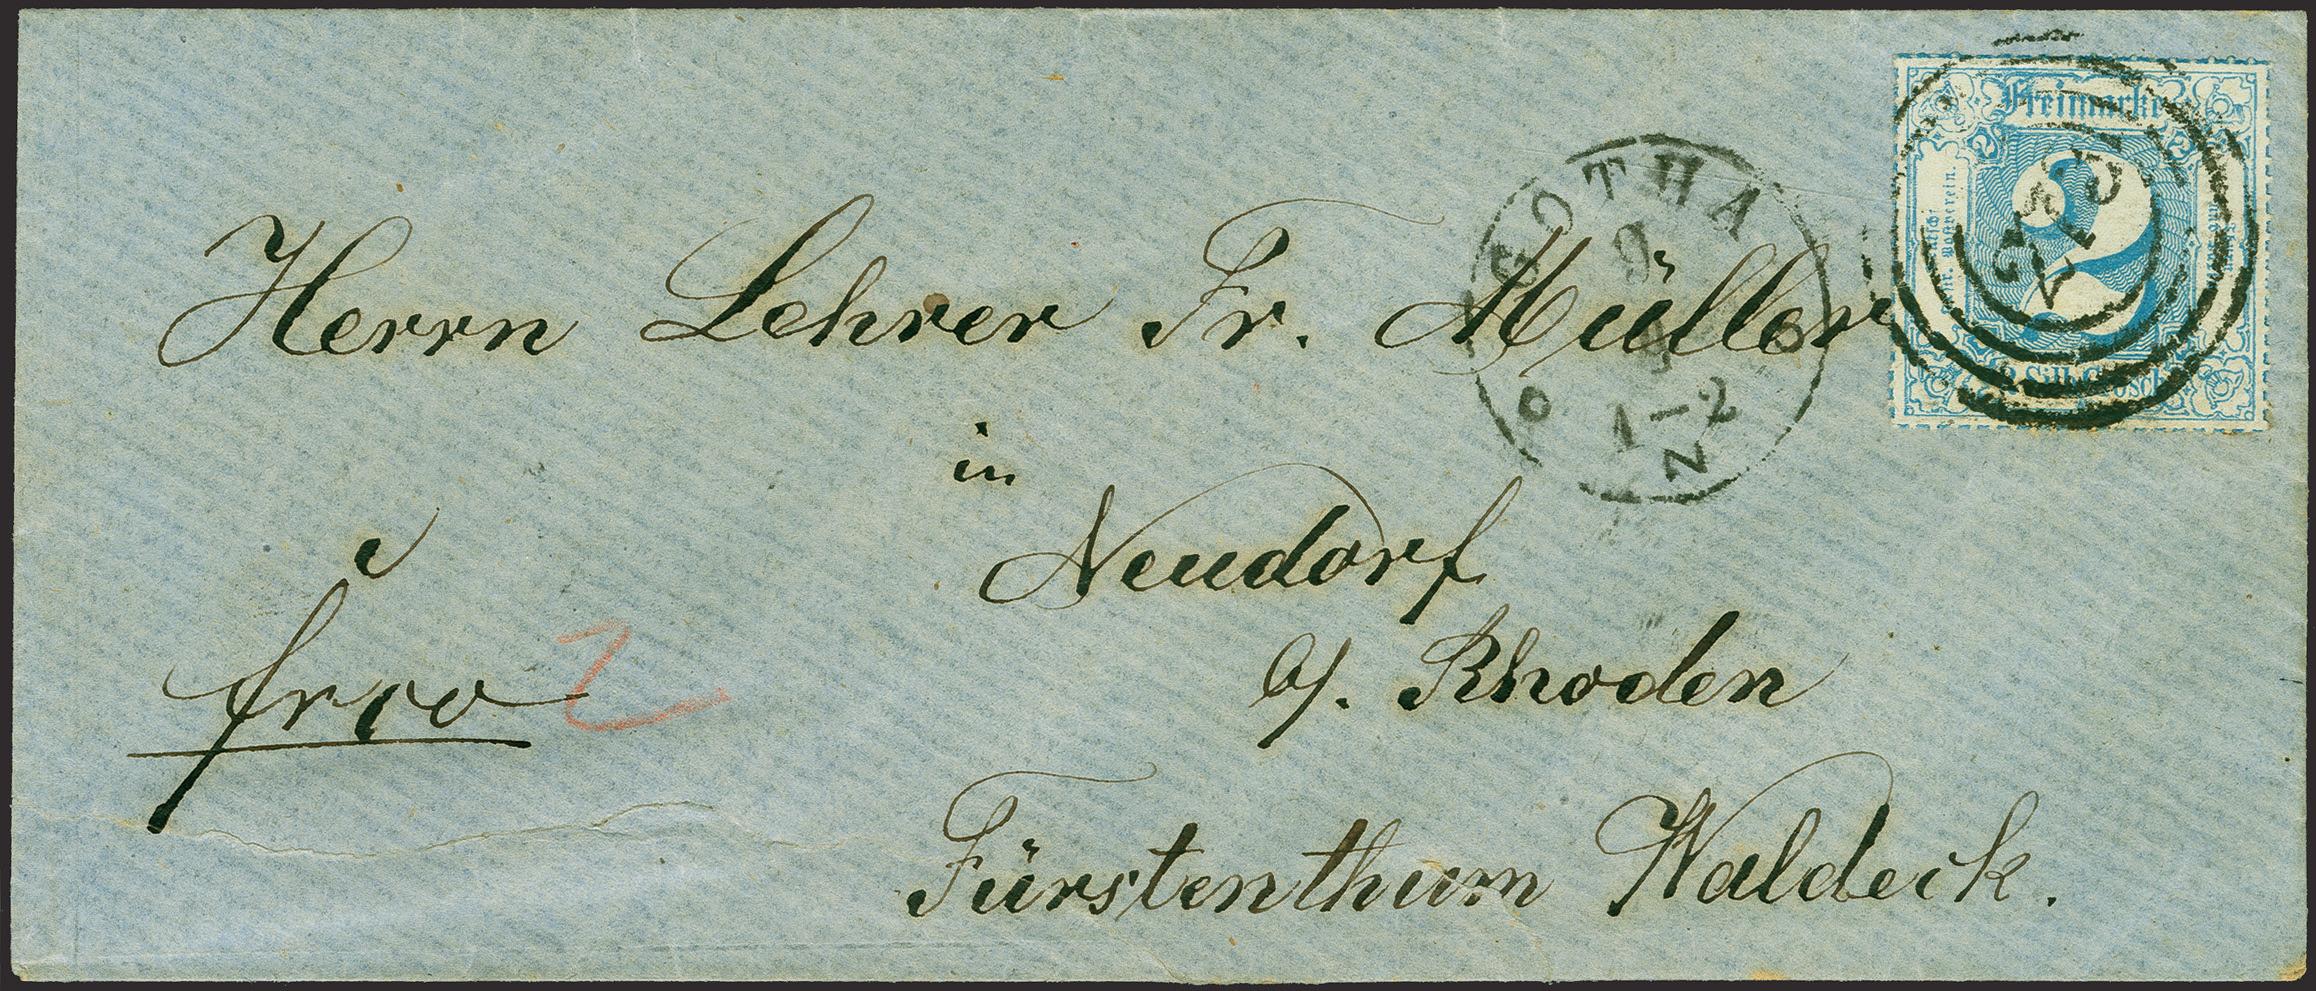 Freimarke
2 2
2
2 Silb. Grosch.
GOTHA
9
9
1-2
N
Herrn Lehrer Fr. Müller
in
Neudorf
b/. Rhoden
Fürstenthum Waldeck.
frco 2